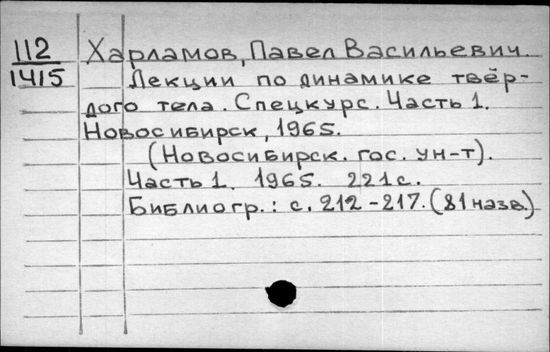 112 Харламов, Павел Васильевич.
1415 Лекции по динамике твёр-
дого тела. Спецкурс. Часть 1.
Новосибирск, 1965.
(Новосибирск. гос. ун-т).
Часть 1. 1965. 221с.
Библиогр.: с. 212-217. (81 назв.)